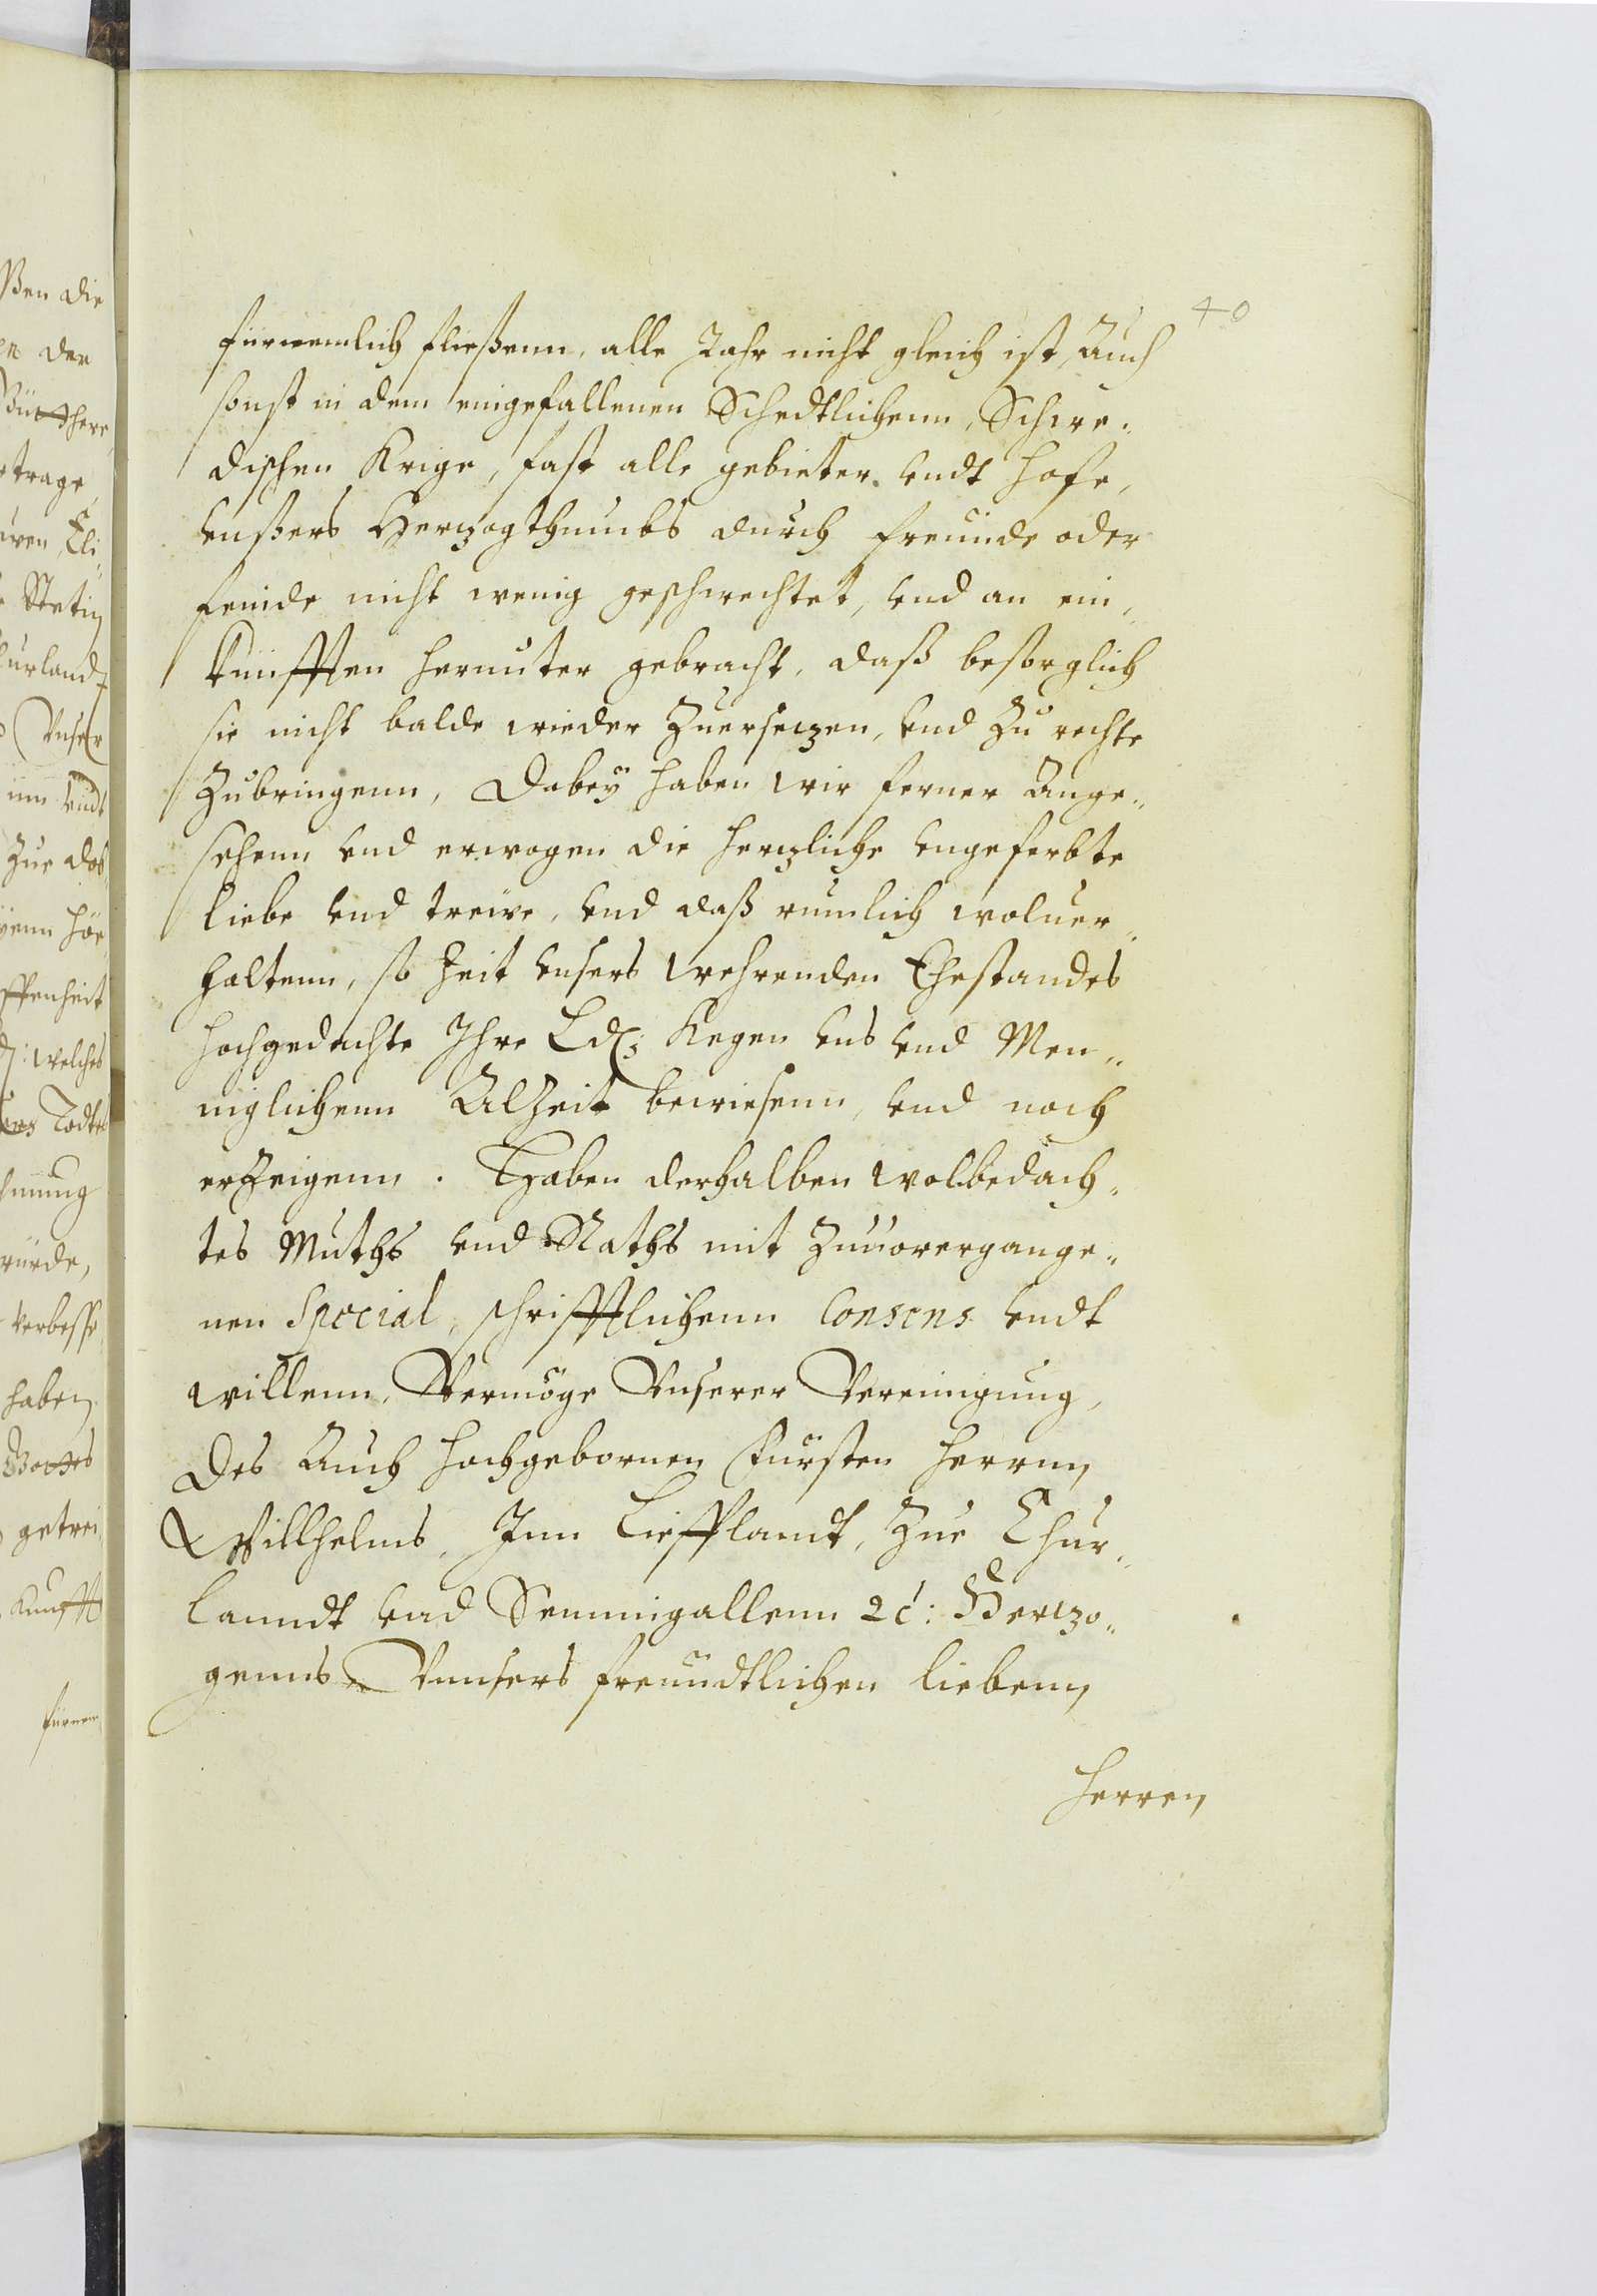 40
fürnemlich fließenn, alle Jahr nicht gleich ist, Auch
sonst in dem eingefallenen Schedtlichenn, Schwe„
dischen Krige, fast alle gebieter vndt Hofe,
vnßers Herzogthumbs durch freunde oder
feinde nicht wenig geschwechtet, vnd an ein„
kunfften herunter gebracht, daß besorglich
sie nicht balde wieder Zuersetzen, vnd Zu rechte
Zubringenn, Dabey haben wir ferner Ange„
sehenn vnd erwogen die herzliche vngeferbte
liebe vnd treiwe, vnd daß rumlich woluer„
haltenn, so Zeit vnsers wehrenden Ehestandes
hochgedachte Ihre Ld: Kegen vns vnd Men„
niglichenn AlZeit bewiesenn, vnd noch
erZeigenn. Haben derhalben wolbedach„
tes Muths vnd Raths mit Zuuorergange„
nen Special, schrifftlichenn Consens vndt
willenn, Vermöge Vnserer Vereinigung,
Des Auch hochgebornen Fürsten Herrnn
Willhelms, Inn Liefflandt, Zue Chur„
lanndt vnd Semmigallenn ꝛc: Herzo„
genns Vnnsers freundtlichen liebenn
Herren
ßen die
en der
trage
iwen, Eli„
Stetin
urland
Vnser
inn vndt
Zue das
ffenheit
welches
Todtes
würde,
verbesse
haben
getrei
Kunfft
fürnem